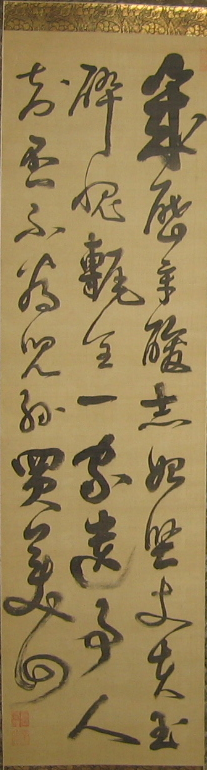 幾歷辛酸志始堅丈夫玉
碎愧甎全一家遺事人
知否不為兒孫買美田